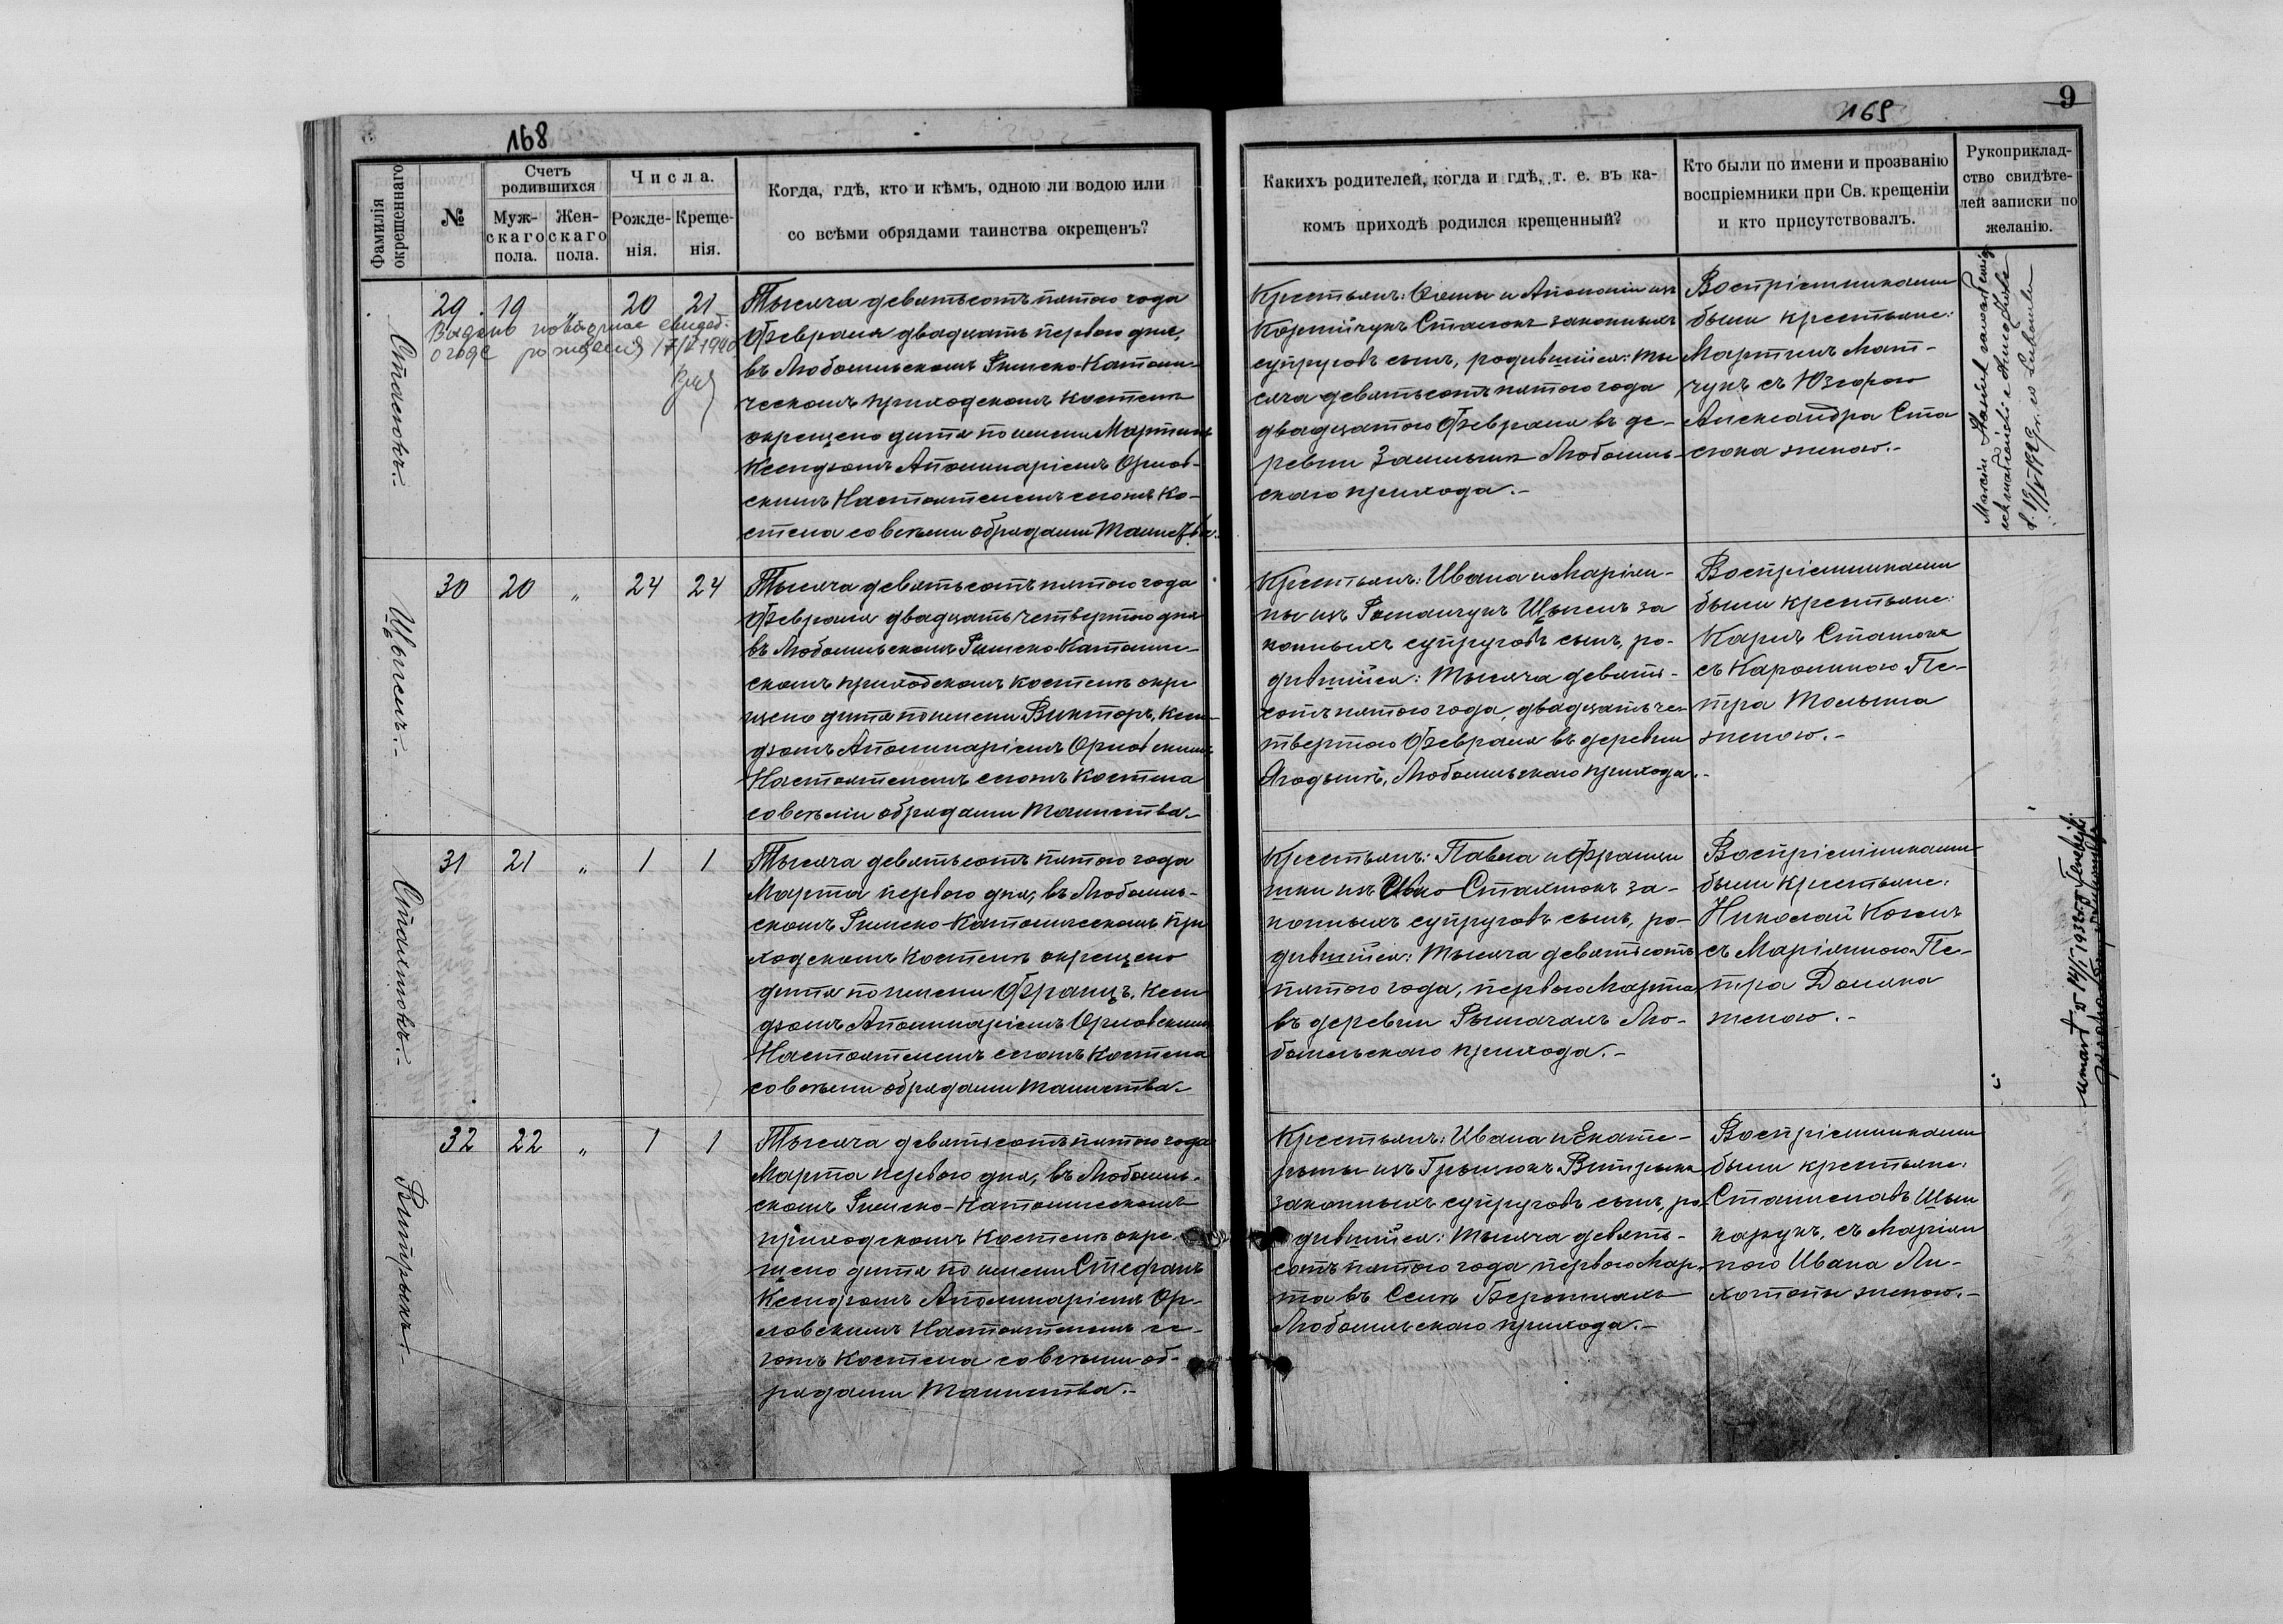 168
Фамилія окрещеннаго
№
Счетъ родившихся
Муж-скаго пола.
Жен-скаго пола.
Числа.
Рожде-нія.
Креще-нія.
Когда, гдѣ, кто и кѣмъ, одною ли водою или
со всѣми обрядами таинства окрещенъ?
Стасюкъ.-
29 19 " 20 21
Выдано повторное свидет.
о годе рождения 17/V 1940
Тысяча девятьсотъ пятого года
Февраля двадцать перваго дня,
въ Любомльскомъ Римско-Католи-
ческомъ приходскомъ костелѣ
окрещено дитя по имени Мартинъ
Ксендзомъ Аполинаріемъ Орлов-
скимъ Настоятелемъ сегожъ Ко-
стела со всѣми обрядами Таинства.
30 20 " 24 24
Тысяча девятьсотъ пятого года
Февраля двадцать четвертого дня
въ Любомльскомъ Римско-Католиче-
скомъ приходскомъ костелѣ окре
щено дитя по имени Викторъ, Ксен-
дзомъ Аполинаріемъ Орловскимъ
Настоятелемъ сегожъ Костела
со всѣми обрядами Таинства.-
Стахнюкъ.-
31 21 " 1 1
Тысяча девятьсотъ пятого года
Марта перваго дня, въ Любомль-
скомъ Римско-Католическомъ при
ходскомъ Костелѣ окрещено
дитя по имени Францъ, Ксен
дзомъ Аполинаріемъ Орловскимъ
Настоятелемъ сегожъ Костела
со всѣми обрядами таинства.-
Витрыкъ.-
32 22 " 1 1
Тысяча девятьсотъ пятого года
Марта перваго дня, въ Любомль-
скомъ Римско-Католическомъ
приходскомъ Костелѣ окре-
щено дитя по имени Стефанъ
Ксендзомъ Аполинаріемъ Ор-
ловскимъ Настоятелемъ се-
гожъ Костела со всѣми об-
рядами Таинства.-
169
9
Какихъ родителей, когда и гдѣ, т. е. въ ка-
комъ приходѣ родился крещенный?
Кто были по имени и прозванію
воспріемники при Св. крещеніи
и кто присутствовалъ.
Рукоприклад-
ство свидѣте-
лей записки по
желанію.
Крестьянъ: и Аполоніи изъ
Стасюкъ законныхъ
супруговъ сынъ, родившійся: ты
сяча девятьсотъ пятого года
двадцатого Февраля въ де-
ревни Любомль-
скаго прихода.-
Воспріемниками
были крестьяне:
Мартинъ Мат-
чукъ съ Юзефою
Александра Ста
сюка женою.-
Marcin
Крестьянъ: Ивана и Маріян-
ны изъ Романчукъ за
конныхъ супруговъ сынъ, ро-
дившійся: Тысяча девять-
сотъ пятого года, двадцать че-
твертого Февраля въ деревни
Ягодынѣ, Любомльскаго прихода.-
Воспріемниками
были крестьяне:
Карлъ Стасюкъ
съ Каролиною Пе-
тра
женою.-
Крестьянъ: Павла и Францы
шки изъ Стахнюкъ за-
конныхъ супруговъ сынъ, ро-
дившійся: Тысяча девятьсотъ
пятого года, перваго Марта
въ деревни Рымачахъ Лю-
бомльскаго прихода.-
Воспріемниками
были крестьяне:
Николай
съ Маріянною Пе-
тра
женою.-
umarł 14/I 1932 r.
Крестьянъ: Ивана и Екате-
рыны изъ Грыцюкъ Витрыкъ
законныхъ супруговъ сынъ, ро-
дившійся: Тысяча девять-
сотъ пятого года перваго Мар-
та въ Селѣ Бережцахъ
Любомльскаго прихода.-
Воспріемниками
были крестьяне:
Станиславъ
съ Маріян
ною Ивана Ли-
хоты женою.-